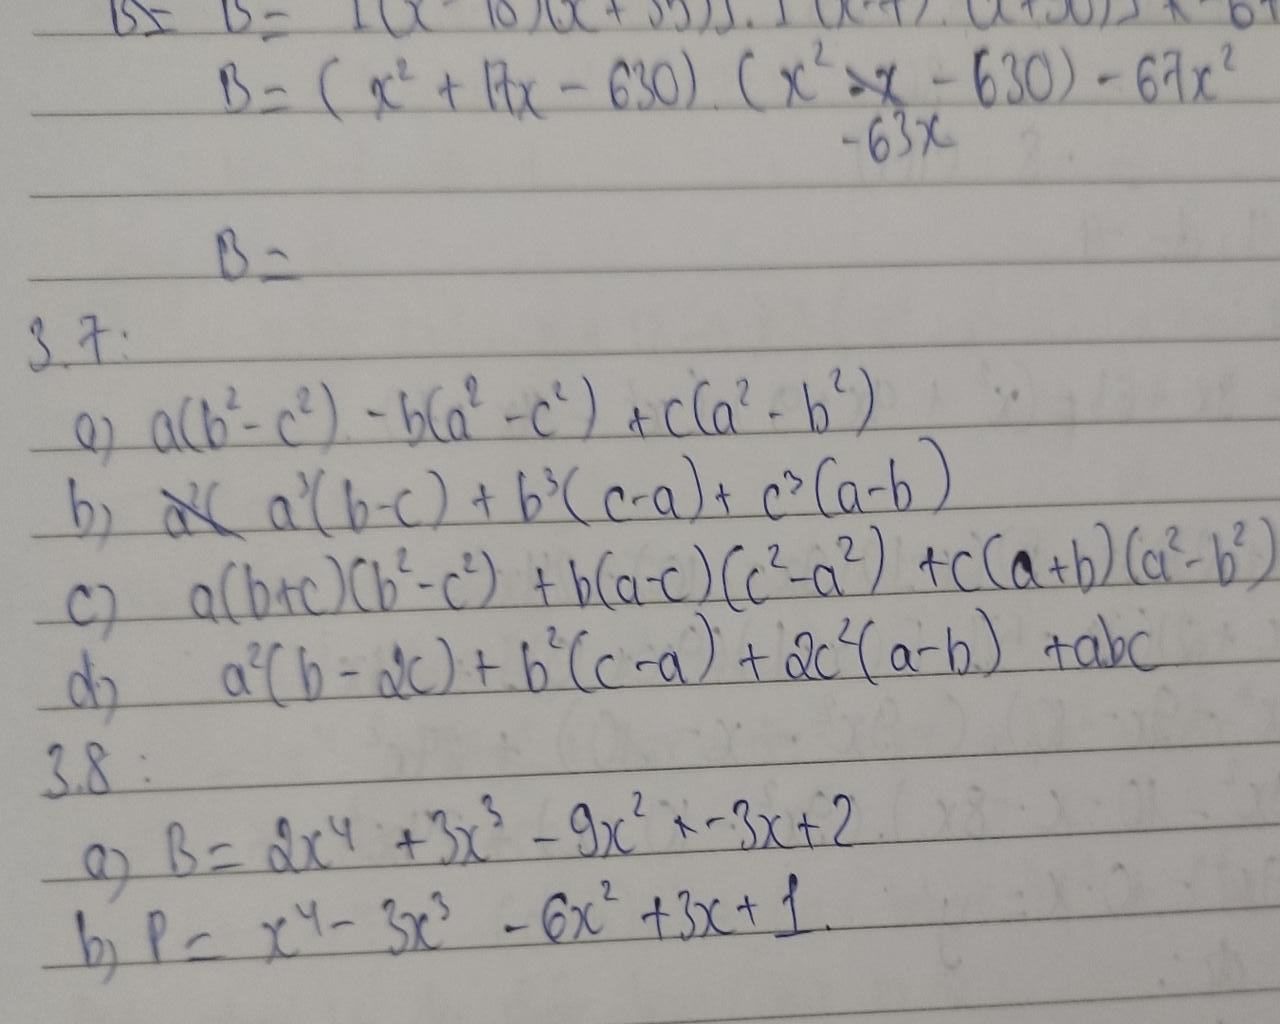 B = (x² + 17x - 630).(x² - x - 630) - 67x²
-63x
B =
3.7:
a) a(b² - c²) - b(a² - c²) + c(a² - b²)
b) a³(b-c) + b³(c-a) + c³(a-b)
c) a(b+c)(b²-c²) + b(a-c)(c²-a²) + c(a+b)(a²-b²)
d) a²(b - 2c) + b²(c-a) + 2c²(a-b) + abc
3.8:
a) B = 2x⁴ + 3x³ - 9x² - 3x + 2
b) P = x⁴ - 3x³ - 6x² + 3x + 1.